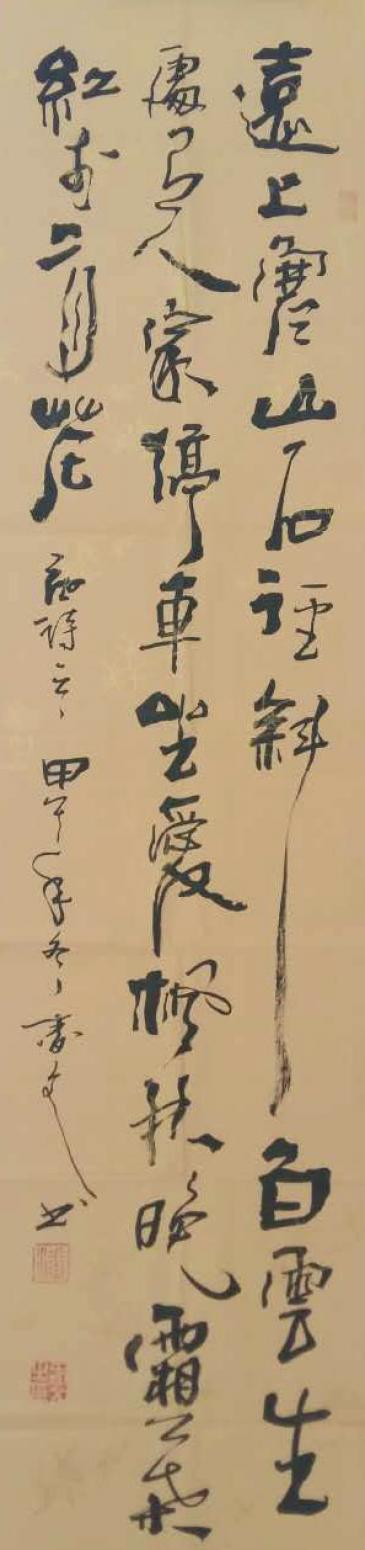 遠上寒山石径斜白雲生
處有人家停車坐愛楓林晚霜葉
紅於二月花 詩意 甲午年冬 书